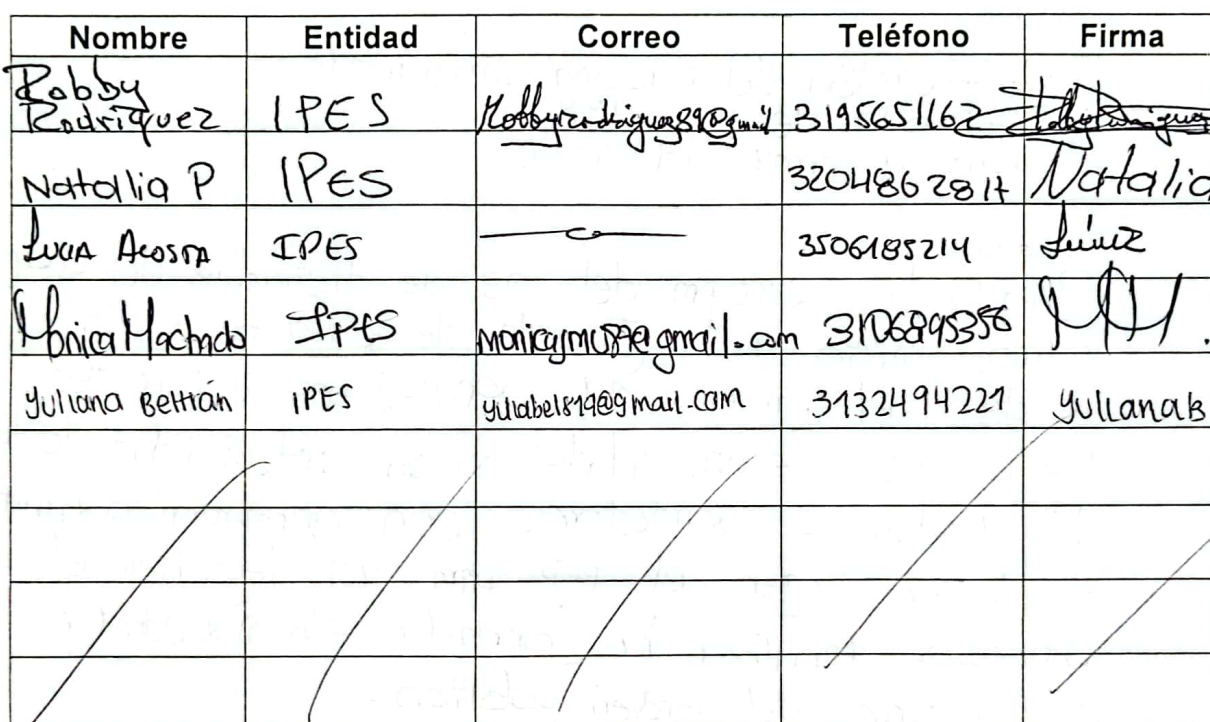 Nombre Entidad Correo Teléfono Firma
Robby
Rodriguez IPES Robbyrodriguez89@gmail 3195651162
Natalia P IPES 3204862817 Natalia
Lucia Acosta IPES 3506185214
Monica Machado IPES monicajmu87@gmail.com 3106895356 MM.
Yuliana Beltrán IPES yuliabel819@gmail.com 3132494221 YulianaB